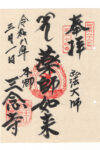 奉拝
弘法大師
薬師如来
令和八年
三月一日
本郷
三念寺